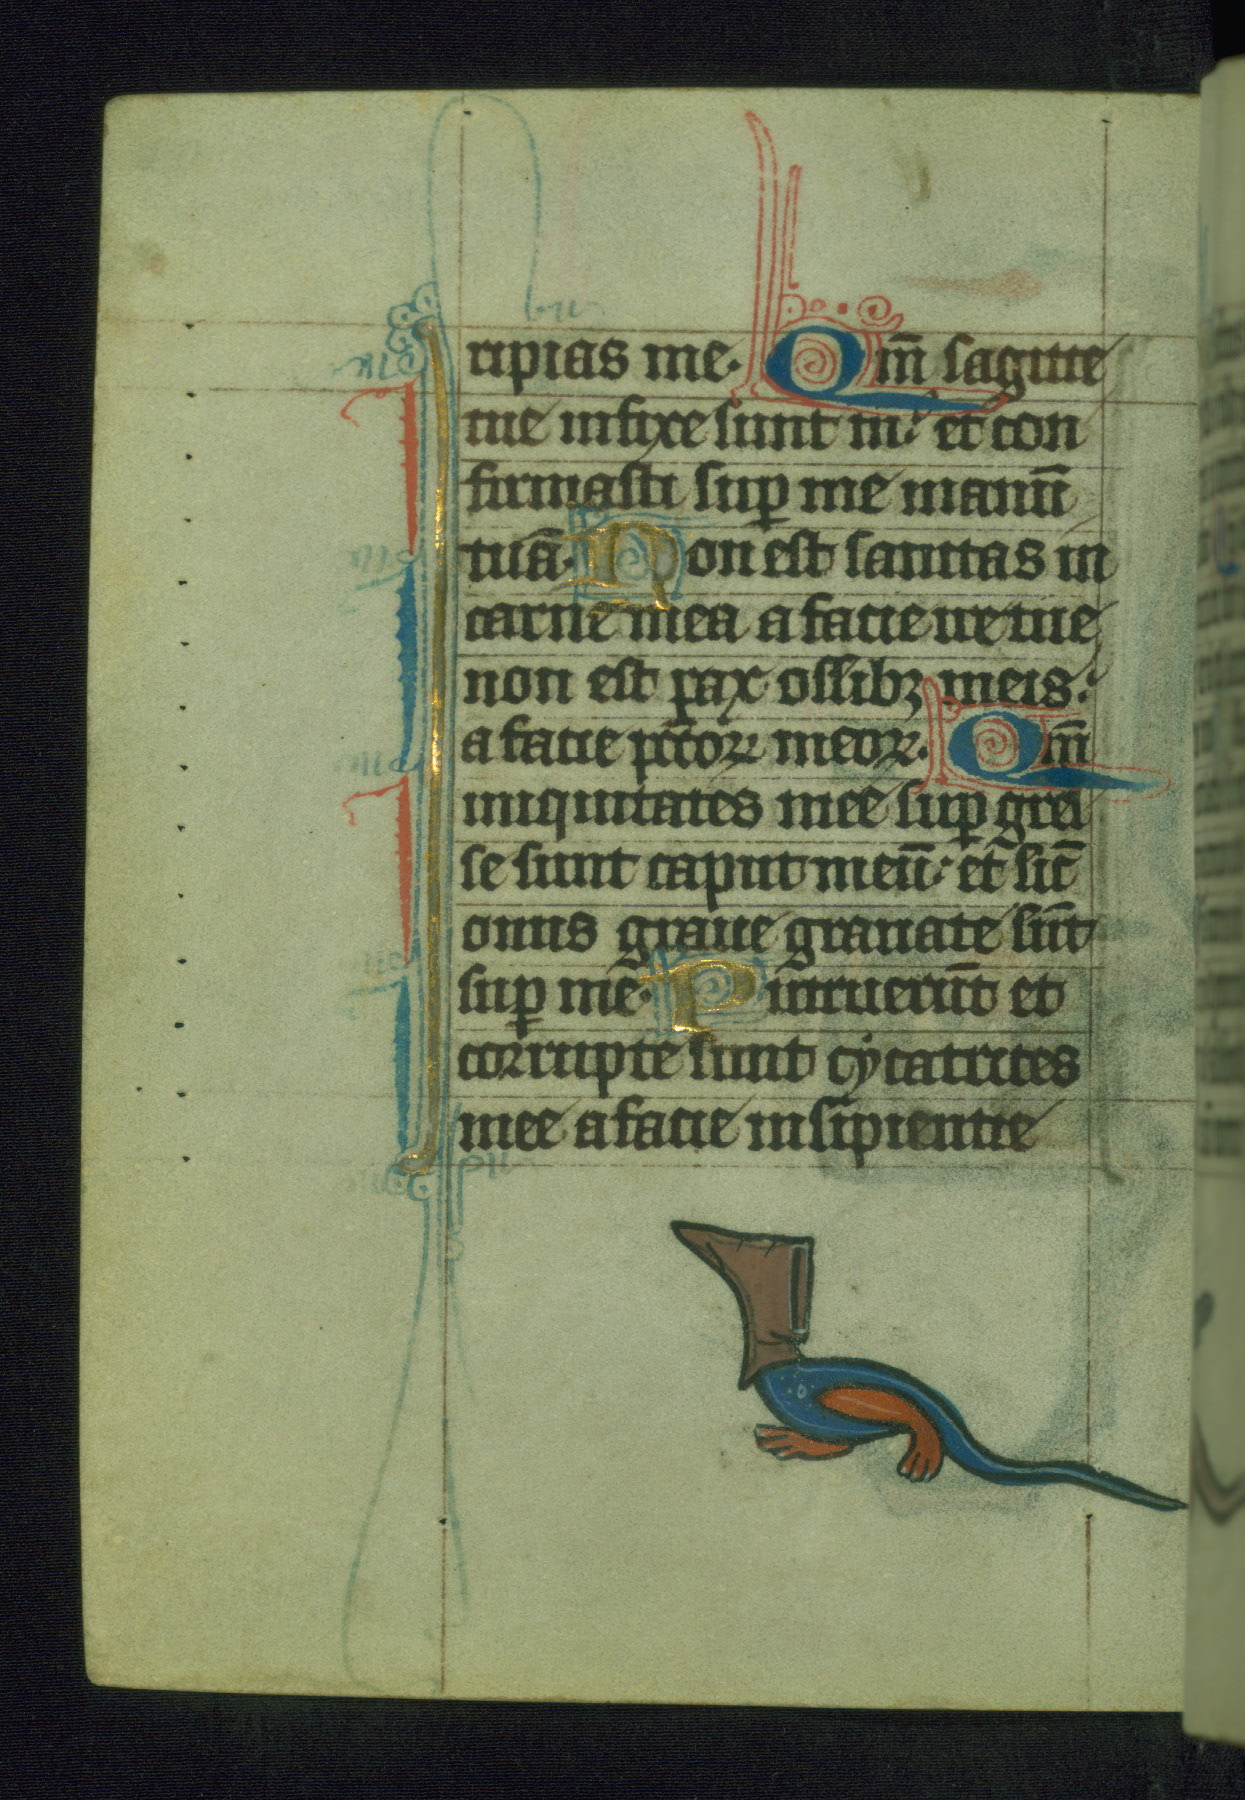 ripias me. Qm̄ sagitte
tue infixe sunt m̄ et con
firmasti sup̱ me manū
tuā. Non est sanitas in
carne mea a facie ire tue
non est pax ossibꝫ meis.
a facie pc̄c̄oꝝ meoꝝ. Qm̄
iniquitates mee sup̱ gres
se sunt caput meū. et sic̄
onus graue grauate sūt
sup̱ me. Putruerūt et
corrupte sunt cycatrices
mee a facie insipientie